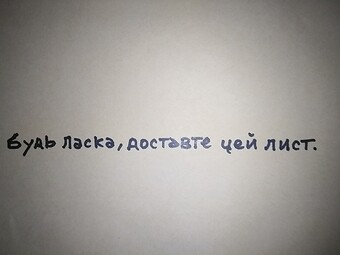 Будь ласка, доставте цей лист.